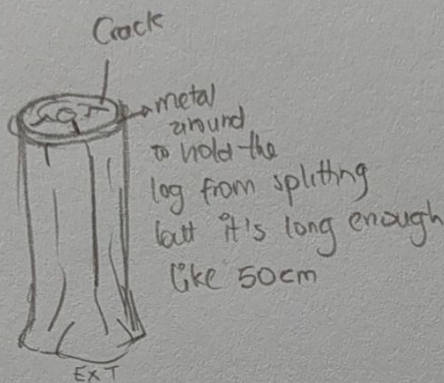 Crack
metal
around
to hold the
log from splitting
but it's long enough
like 50cm
EXT